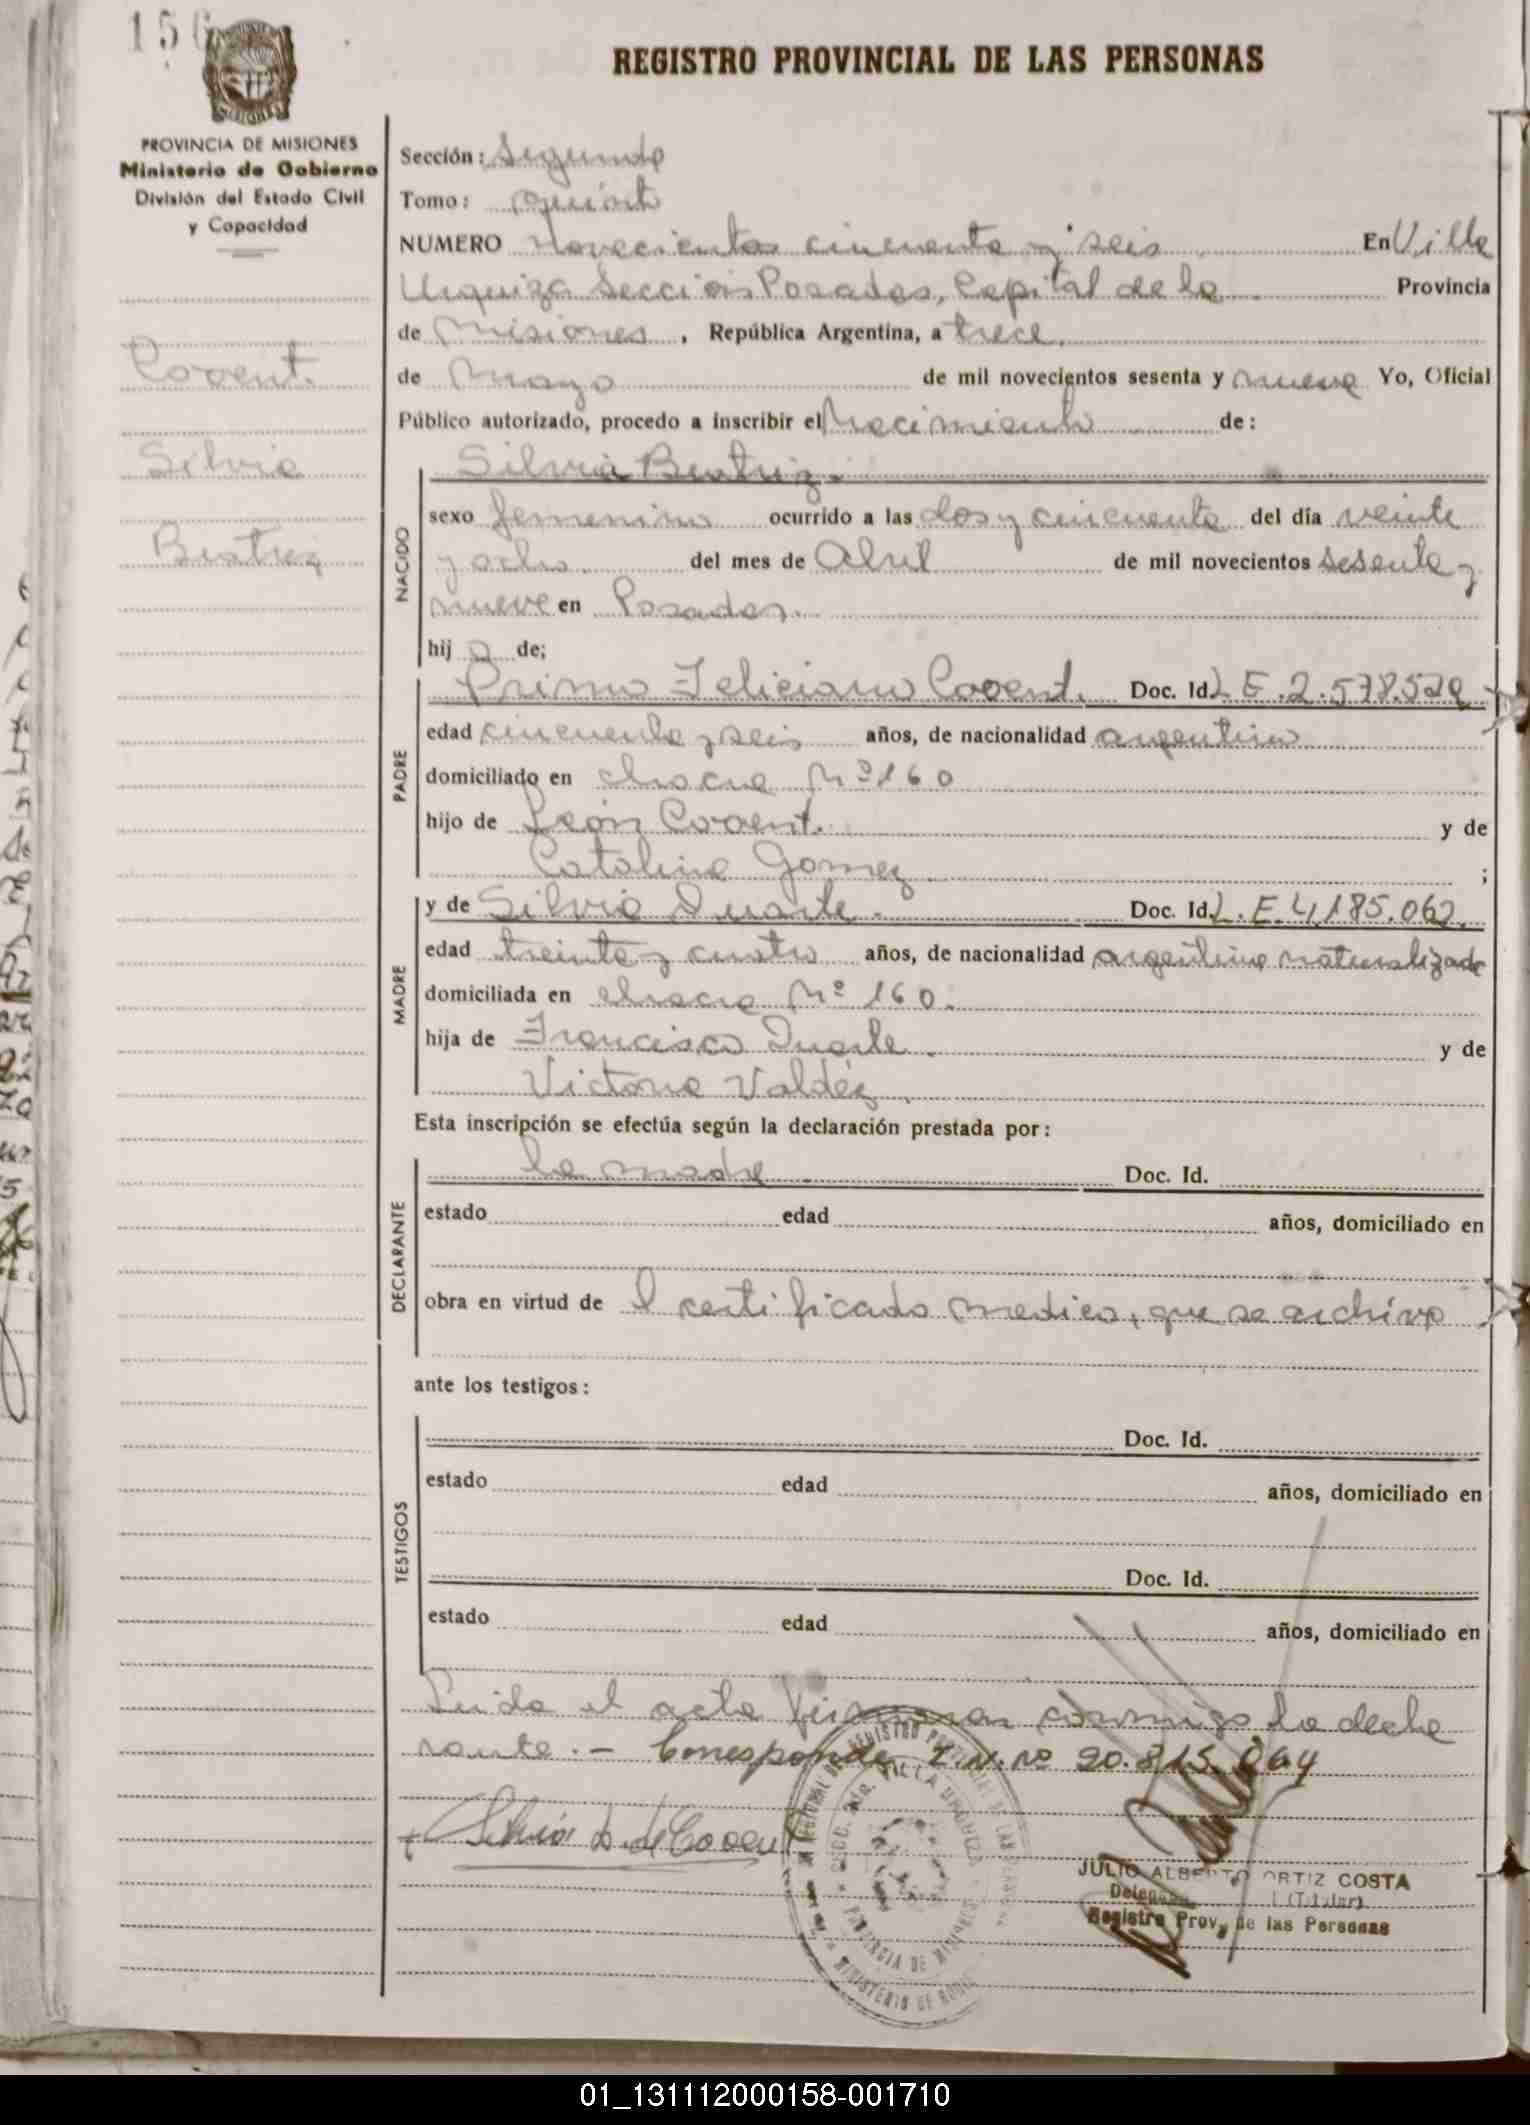 156
REGISTRO PROVINCIAL DE LAS PERSONAS
PROVINCIA DE MISIONES
Ministerio de Gobierno
División del Estado Civil
y Capacidad
Sección: Segunda
Tomo: quinto
NUMERO Novecientos cincuenta y seis En Villa
Urquiza Sección Posadas, Capital de la Provincia
de Misiones, República Argentina, a trece
de Mayo de mil novecientos sesenta y nueve Yo, Oficial
Público autorizado, procedo a inscribir el Nacimiento de:
CoOent.
Silvia
Beatriz
NACIDO
Silvia Beatriz.
sexo femenino ocurrido a las dos y cincuenta del día veinte
y ocho. del mes de Abril de mil novecientos sesenta y
nueve en Posadas.
hij a de;
PADRE
Primo Feliciano Doc. Id. L E. 2.578.529
edad cincuenta y seis años, de nacionalidad argentino
domiciliado en chacra Nº 160
hijo de León y de
Catalina Gomez. ;
MADRE
y de Silvia Duarte. Doc. Id. L.E. 4.185.062.
edad treinta y cuatro años, de nacionalidad argentina naturalizada
domiciliada en chacra Nº 160.
hija de Francisco Duarte. y de
Victoria Valdéz.
Esta inscripción se efectúa según la declaración prestada por:
DECLARANTE
la madre Doc. Id.
estado edad años, domiciliado en
obra en virtud de l certificado medico, que se archiva
ante los testigos:
TESTIGOS
Doc. Id.
estado edad años, domiciliado en
Doc. Id.
estado edad años, domiciliado en
Leida el acta firman conmigo la decla
rante. - Corresponde L.N. nº 20.815.064
Silvia D. de
REGISTRO PROVINCIAL DE LAS PERSONAS
SECC. 2da. VILLA URQUIZA
PROVINCIA DE MISIONES
MINISTERIO DE GOBIERNO
JULIO ALBERTO ORTIZ COSTA
Delegado (Titular)
Registro Prov. de las Personas
01_131112000158-001710